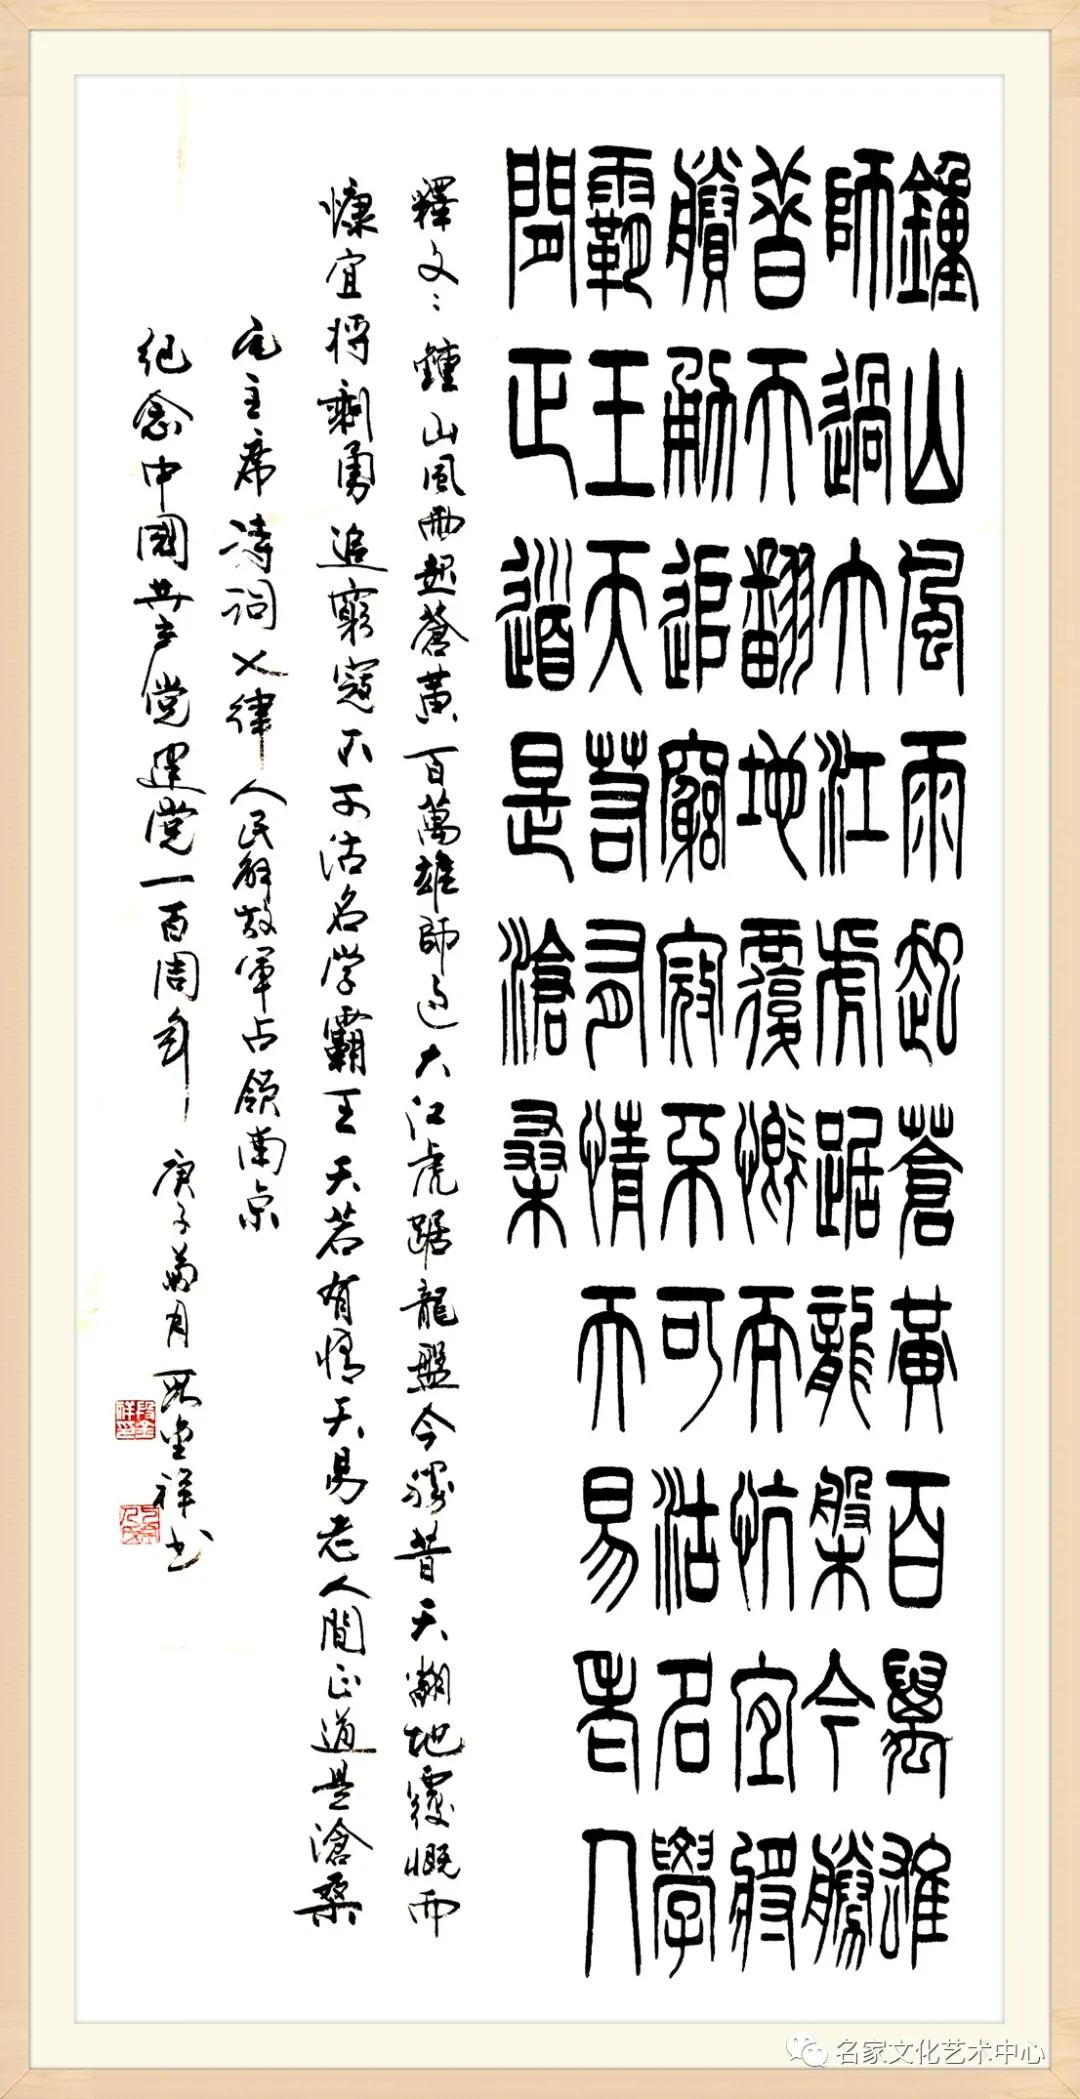 鐘山風雨起蒼黃百萬雄
師過大江虎踞龍槃今勝
昔天翻地覆慨而忼宜將
賸勇追窮寇不可沽名學
霸王天若有情天易老人
間正道是滄桑
釋文：鍾山風雨起蒼黃百萬雄師过大江虎踞龍盤今勝昔天翻地覆慨而
慷宜将剩勇追窮寇不可沽名学霸王天若有情天易老人間正道是滄桑
毛主席詩词七律人民解放軍占領南京
纪念中國共产党建党一百周年 庚子菊月 段金祥书
段金祥印
名家文化艺术中心